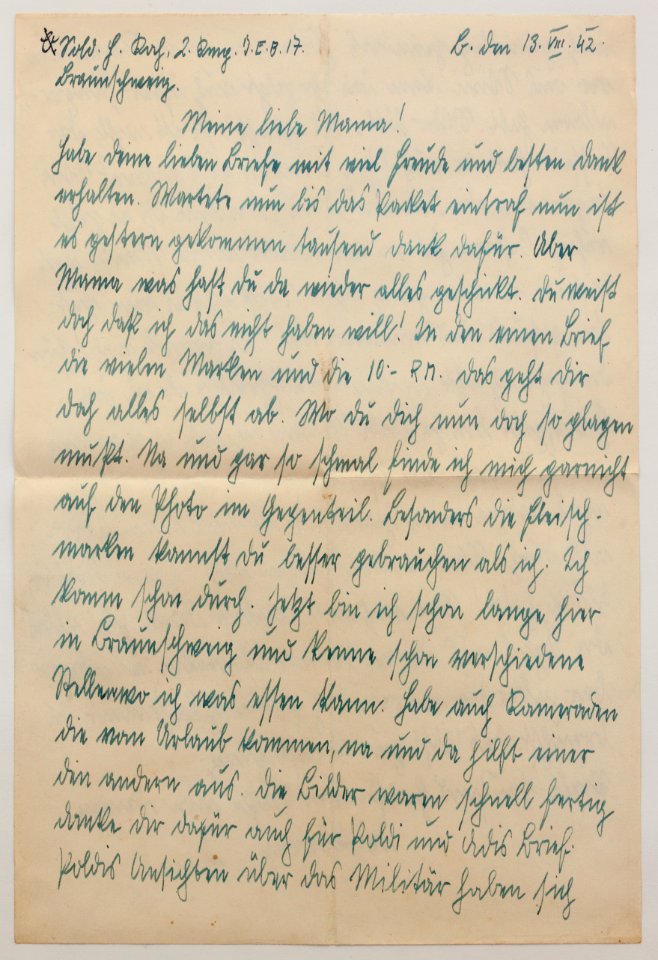 Sold. H. Koh, 2. Kmp. J.E.B. 17. B. den 13. VIII. 42.
Braunschweig.
Meine liebe Mama!
Habe deine lieben Briefe mit viel Freude und besten Dank
erhalten. Wartete nun bis das Packet eintraf nun ist
es gestern gekommen tausend Dank dafür. Aber
Mama was hast du da wieder alles geschikt. Du weist
doch daß ich das nicht haben will! In den einen Brief
die vielen Marken und die 10.- RM. das geht dir
doch alles selbst ab. Wo du dich nun doch so plagen
mußt. Na und gar so schmal finde ich mich garnicht
auf den Photo im Gegenteil. Besonders die Fleisch-
marken kannst du besser gebrauchen als ich. Ich
komm schon durch. Jetzt bin ich schon lange hier
in Braunschweig und kenne schon verschiedene
Stellen wo ich was essen kann. Habe auch Kameraden
die vom Urlaub kommen, na und da hilft einer
den andern aus. Die Bilder waren schnell fertig
danke dir dafür auch für Poldi und Adis Brief.
Poldis Ansichten über das Militär haben sich